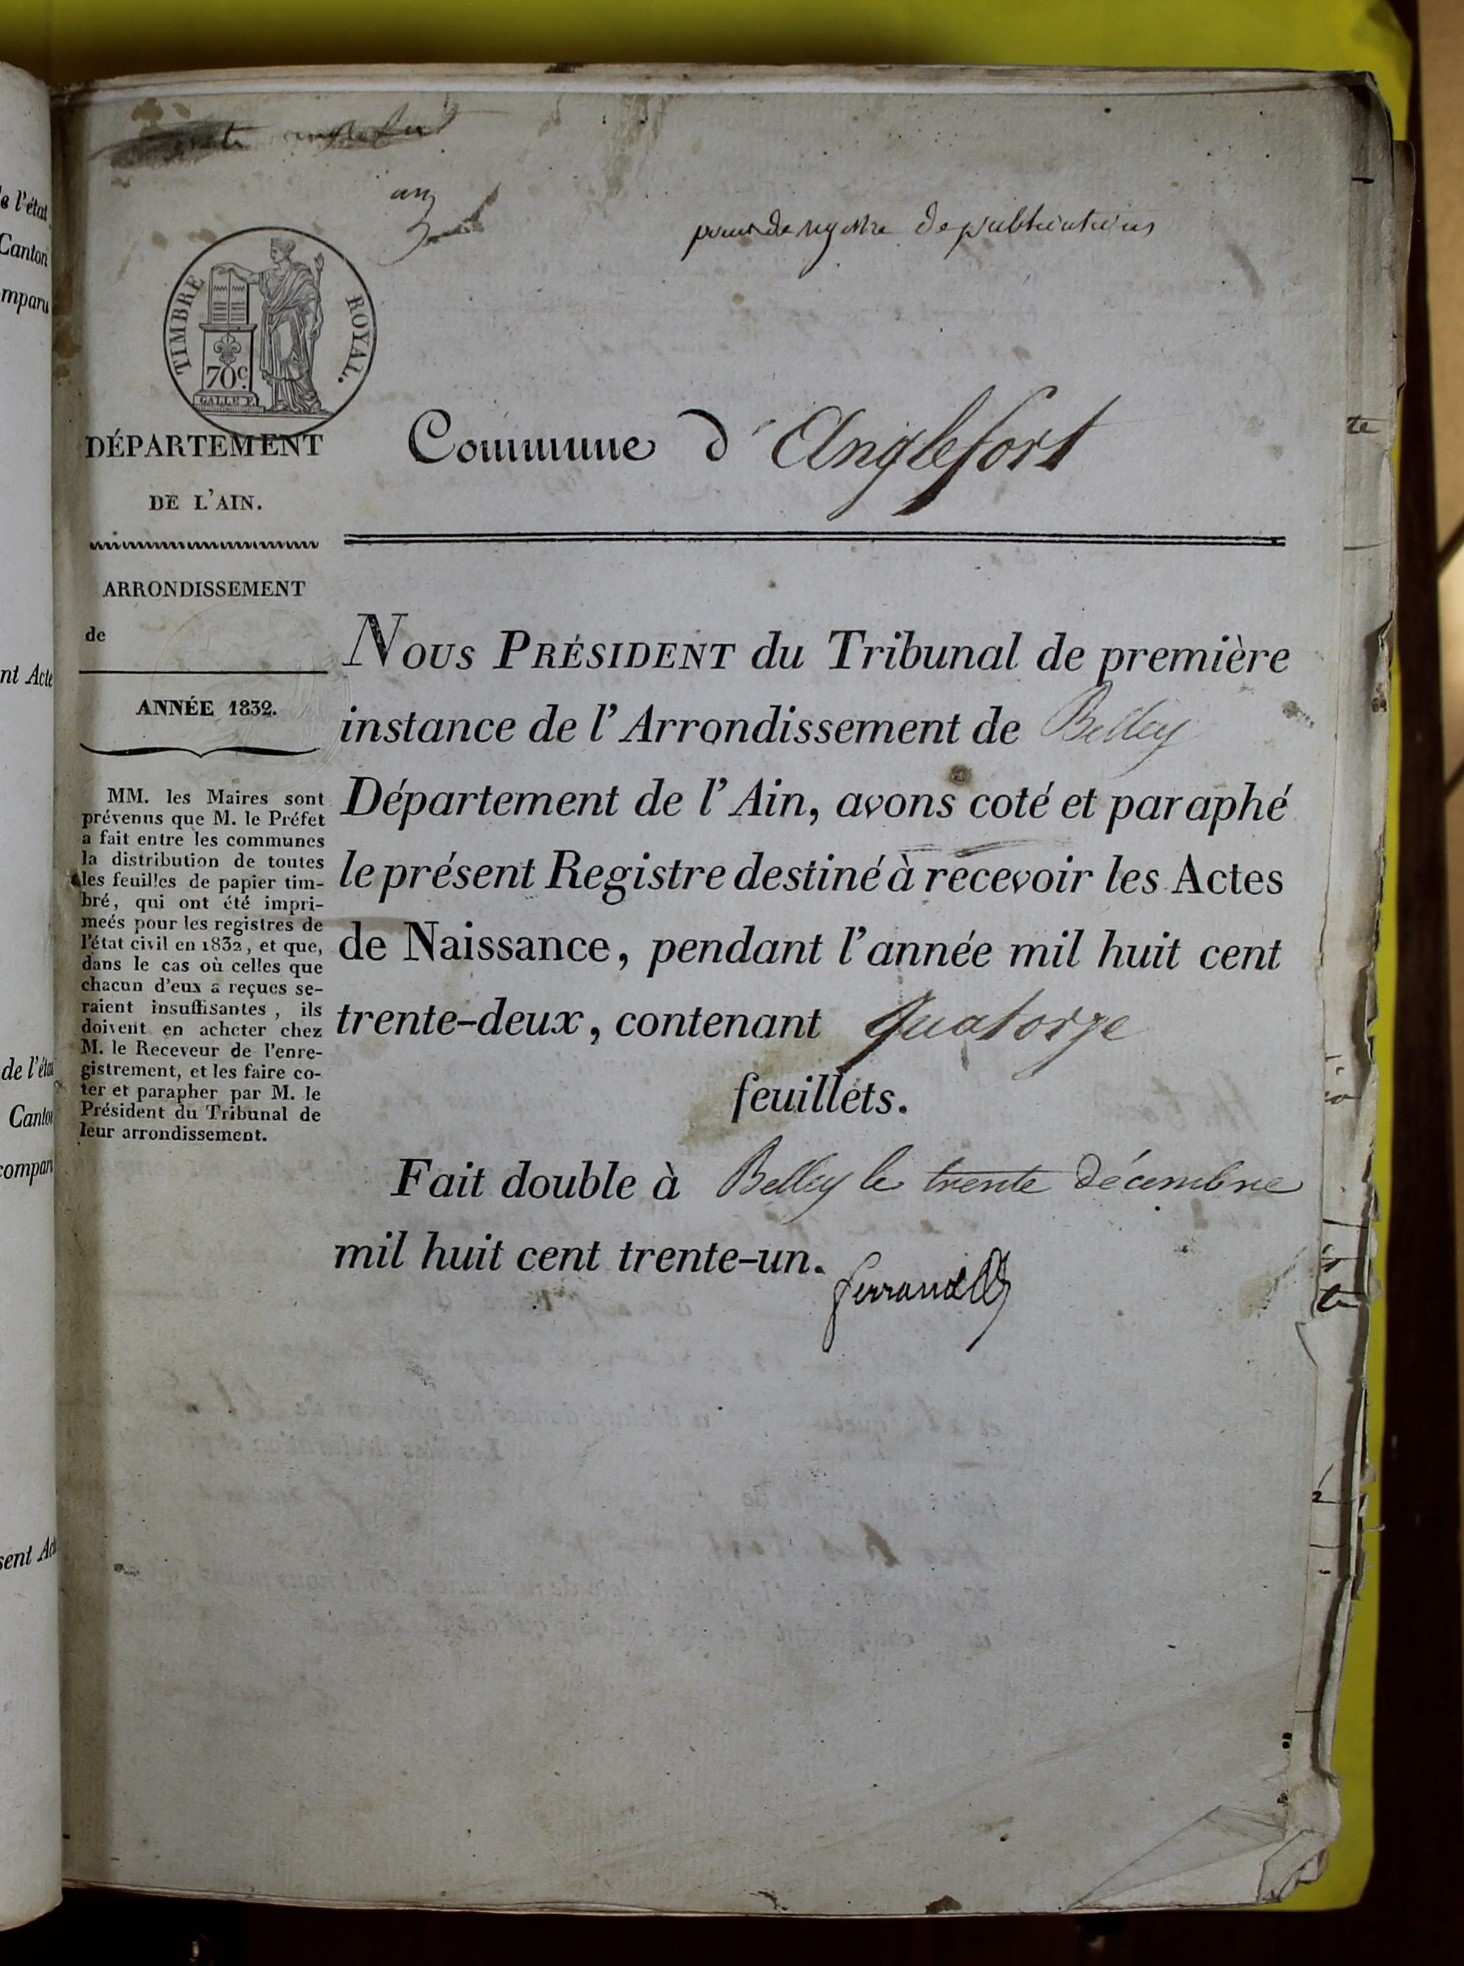 de l'état
Canton
comparu
nt Acte
de l'état
Canton
compar
sent Act
de publications
TIMBRE ROYAL.
70c.
GALLE F.
DÉPARTEMENT
DE L'AIN.
Commune d'Anglefort
ARRONDISSEMENT
de
ANNÉE 1832.
MM. les Maires sont
prévenus que M. le Préfet
a fait entre les communes
la distribution de toutes
les feuilles de papier tim-
bré, qui ont été impri-
meés pour les registres de
l'état civil en 1832, et que,
dans le cas où celles que
chacun d'eux a reçues se-
raient insuffisantes, ils
doivent en acheter chez
M. le Receveur de l'enre-
gistrement, et les faire co-
ter et parapher par M. le
Président du Tribunal de
leur arrondissement.
NOUS PRÉSIDENT du Tribunal de première
instance de l'Arrondissement de Belley
Département de l'Ain, avons coté et paraphé
le présent Registre destiné à recevoir les Actes
de Naissance, pendant l'année mil huit cent
trente-deux, contenant quatorze
feuillets.
Fait double à Belley le trente décembre
mil huit cent trente-un.